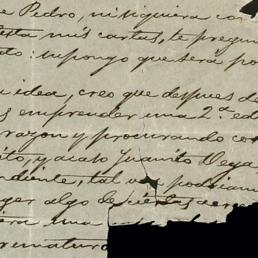 e Pedro, ni siquiera con
esta mis cartas, te pregun
to: supongo que sera po
i idea, creo que despues de
s emprender una 2.ª ed
razon y procurando cor
ito, y acaso Juanito Vega,
ndiente, tal vez podriam
ger algo de
iera una
rematura